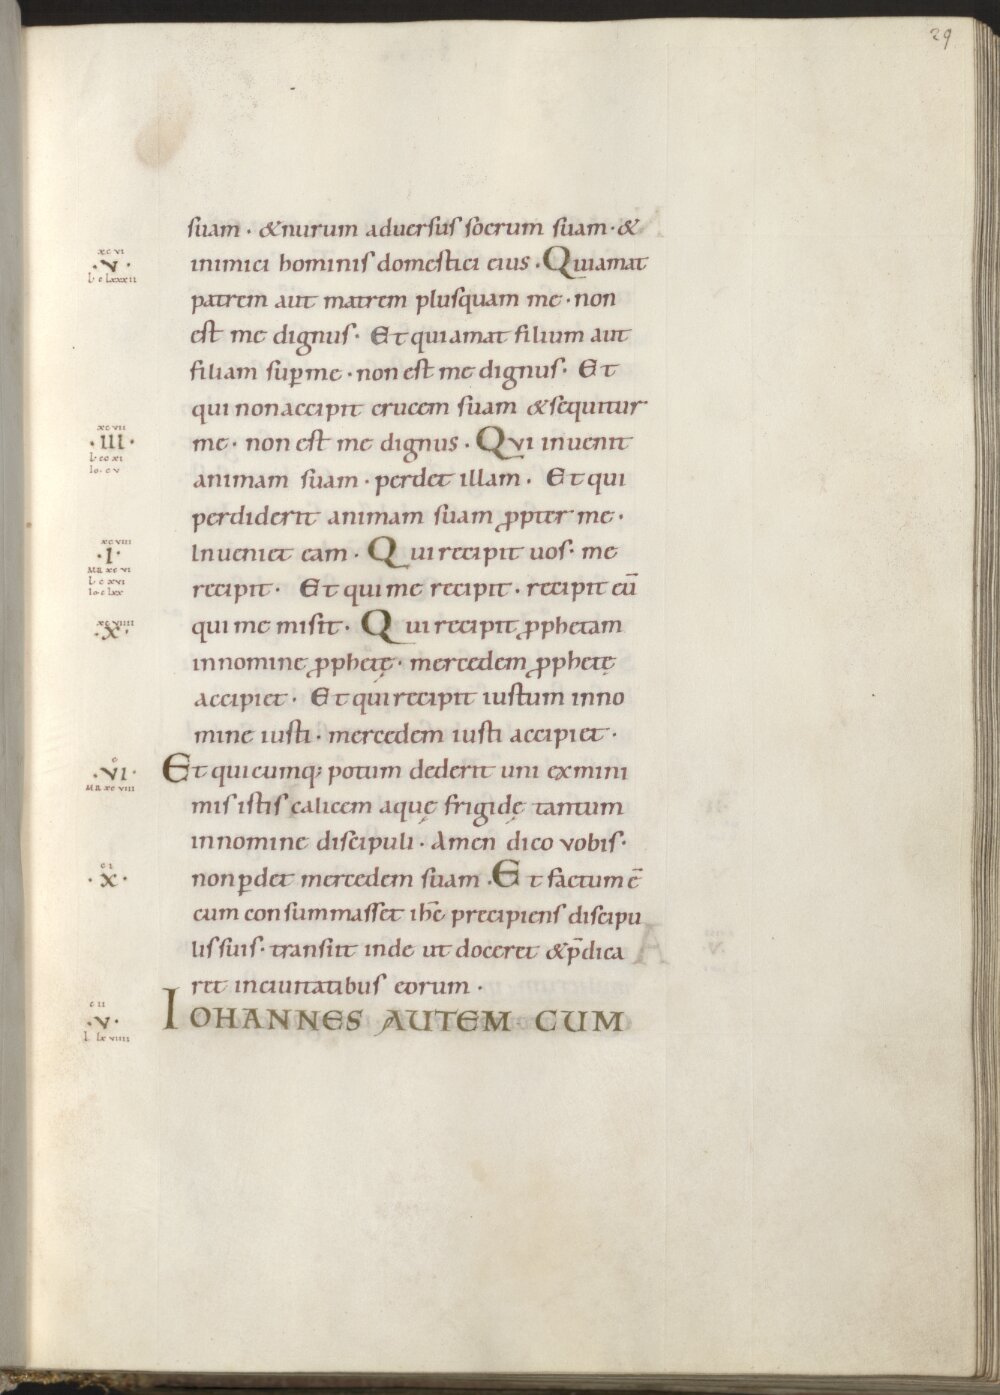 29
suam · & nurum aduersus socrum suam · &
inimici hominis domestici eius · Qui amat
patrem aut matrem plusquam me · non
est me dignus · Et qui amat filium aut
filiam sup̱ me · non est me dignus · Et
qui non accipit crucem suam & sequitur
me · non est me dignus · Qui inuenit
animam suam · perdet illam · Et qui
perdiderit animam suam ꝓpter me ·
Inueniet eam · Qui recipit uos · me
recipit · Et qui me recipit · recipit eū
qui me misit · Qui recipit ꝓphetam
in nomine ꝓphetę · mercedem ꝓphetę
accipiet · Et qui recipit iustum in no
mine iusti · mercedem iusti accipiet ·
Et quicumq; potum dederit uni ex mini
mis istis calicem aquę frigidę tantum
in nomine discipuli · Amen dico vobis ·
non ꝑdet mercedem suam · Et factum ē
cum consummasset ihc̄ precipiens discipu
lis suis · transiit inde ut doceret & p̄dica
ret in ciuitatibus eorum ·
IOHANNES AUTEM CUM
xc vi
· v ·
L c lxxxii
xc vii
· III ·
L cc xi
Io · c v
xc viii
· I ·
MR xc vi
L c xvi
Io · c xx
xc viiii
· x ·
c
· vi ·
MR xc viii
c i
· x ·
c ii
· v ·
L lx viiii